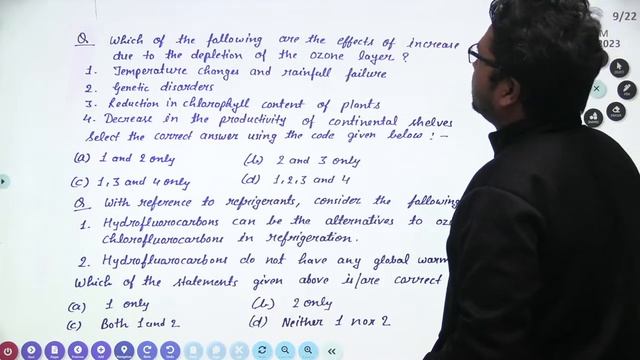 9/22
M
2023
Q. Which of the following are the effects of increase
due to the depletion of the ozone layer ?
1. Temperature changes and rainfall failure
2. Genetic disorders
3. Reduction in chlorophyll content of plants
4. Decrease in the productivity of continental shelves
Select the correct answer using the code given below : -
(a) 1 and 2 only (b) 2 and 3 only
(c) 1, 3 and 4 only (d) 1, 2, 3 and 4
Q. With reference to refrigerants, consider the following
1. Hydrofluorocarbons can be the alternatives to oz
Chlorofluorocarbons in refrigeration.
2. Hydrofluorocarbons do not have any global warm
Which of the statements given above is/are correct
(a) 1 only (b) 2 only
(c) Both 1 and 2 (d) Neither 1 nor 2